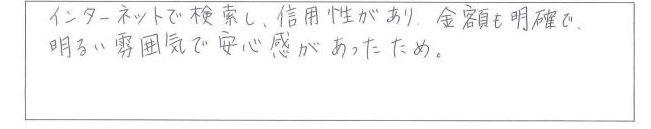 インターネットで検索し、信用性があり、金額も明確で、
明るい雰囲気で安心感があったため。